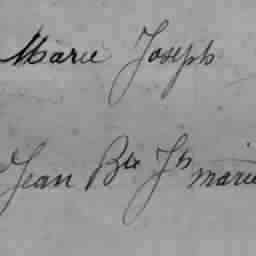 Marie Joseph
Jean Bte Jh marie